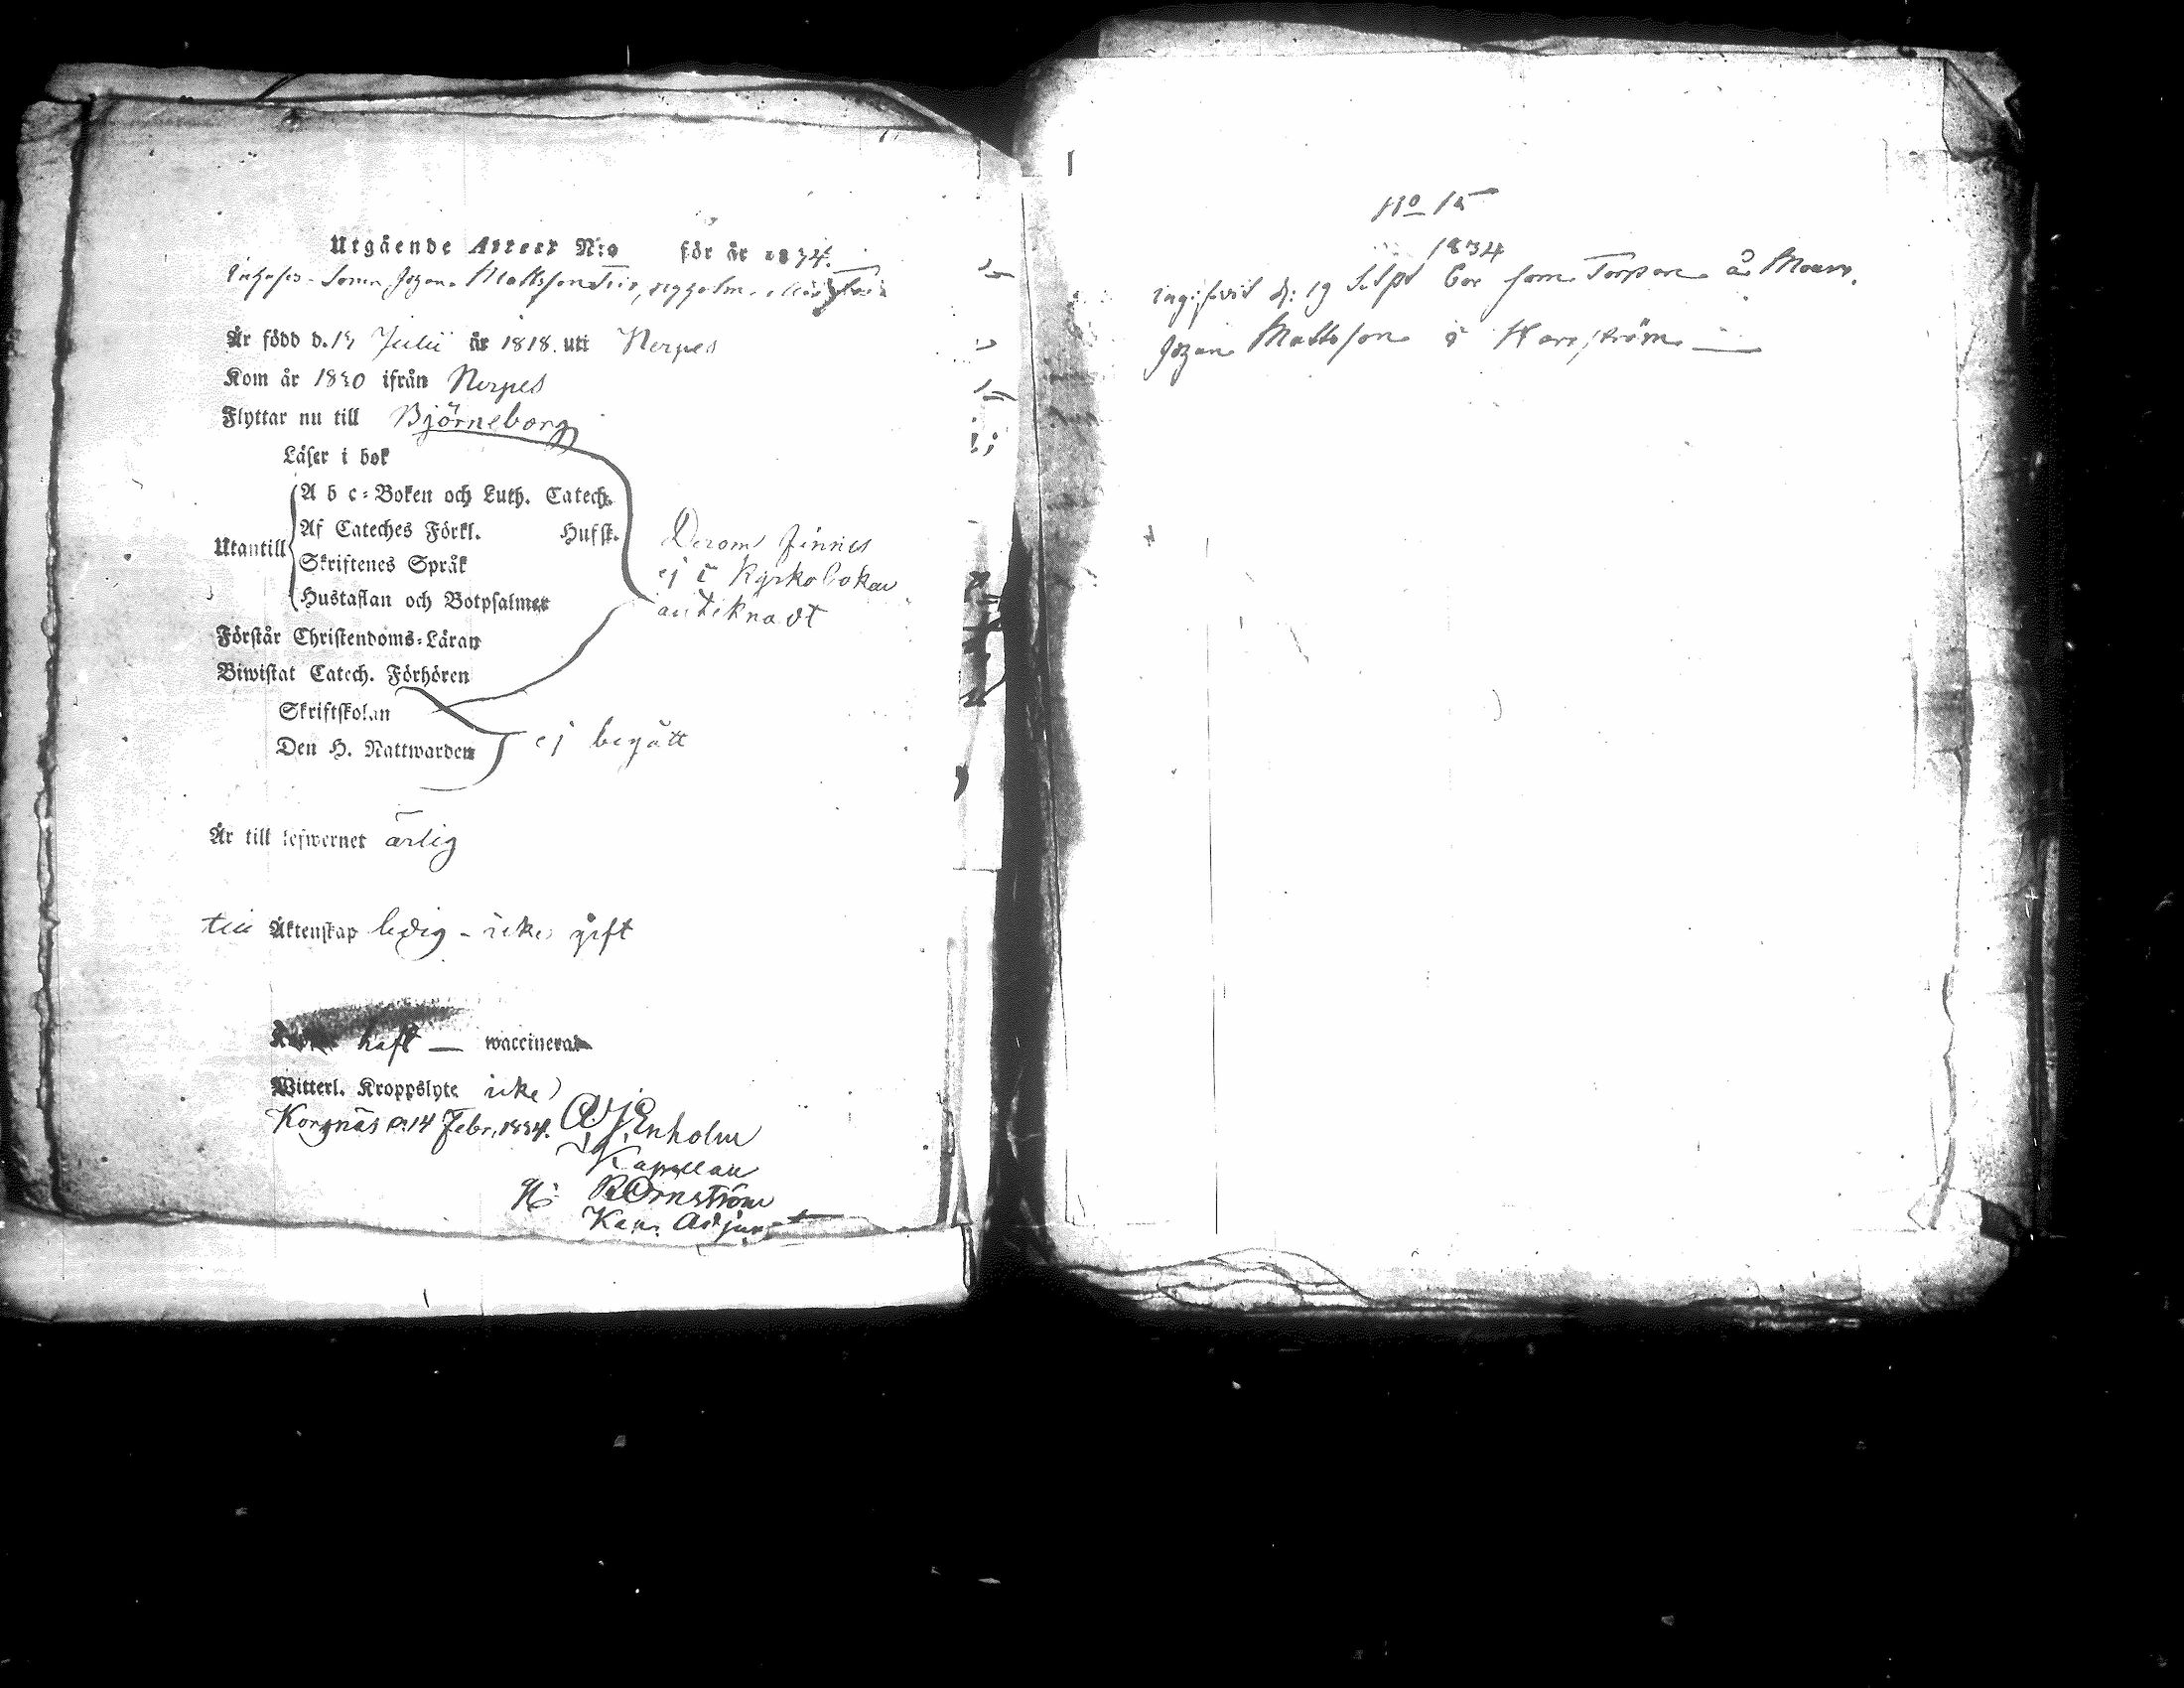 Utgående Attest N:o för år 1834.
Inhyses-Sonen Johan Mattsson
Är född d. 19 Julii år 1818. uti Nerpes
Kom år 1830 ifrån Nerpes
Flyttar nu till Björneborg
Läser i bok
A b c-Boken och Luth. Catech.
Af Cateches Förkl. Hufst.
Utantill
Skriftenes Språk
Hustaflan och Botpsalmer
Derom finnes
ej i Kyrkoboken
anteknadt
Förstår Christendoms-Läran
Biwistat Catech. Förhören
Skriftskolan
Den H. Nattwarden
ej begått
Är till lefwernet ärlig
till Äktenskap ledig - icke gift
haft — waccinerad
Witterl. Kroppslyte icke
Korsnäs d. 14 Febr. 1834.
Enholm
Kapellan
Örnström
Kap. Adjunct
No 15
1834
d: 19 som å
Johan Mattsson